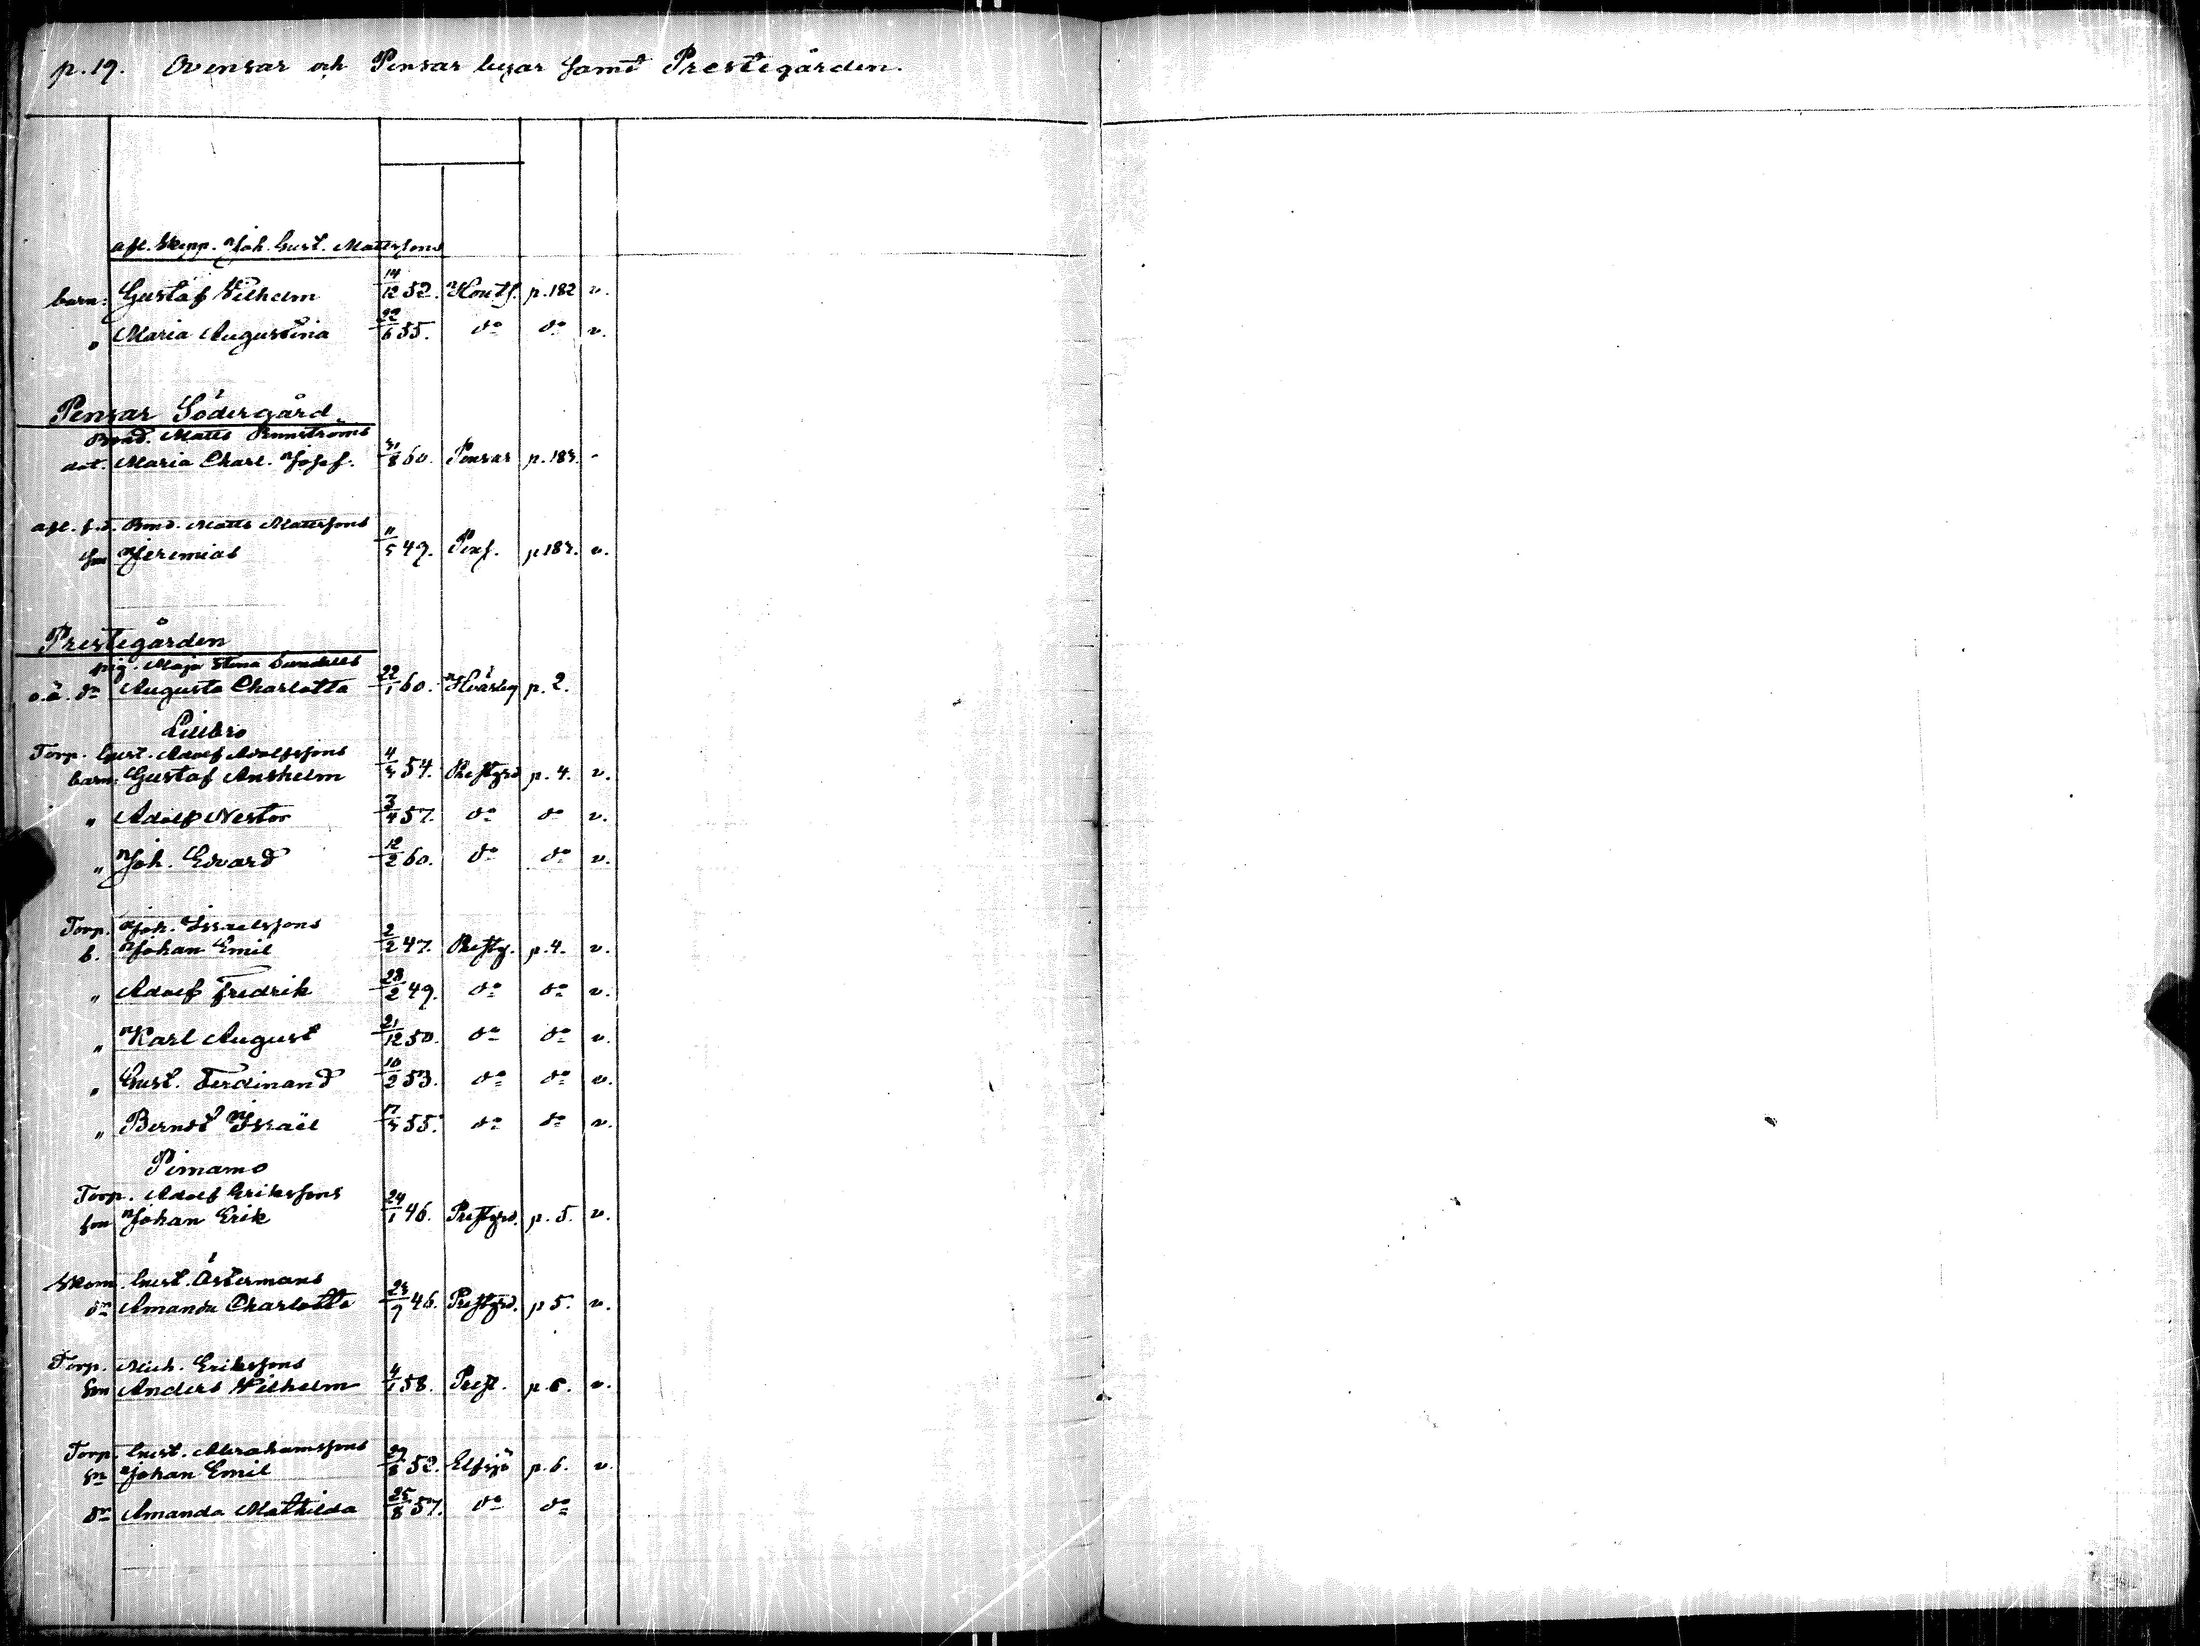 p. 19. Ovensar och Pensar byar samt Prestegården.
afl. Skepp. Joh. Gust. Mattssons
barn: Gustaf Vilhelm 14/12 52. Houts. p. 182 v.
" Maria Augustina 22/6 55. do do v.
Pensar Södergård
Bond. Matts Rennströms
dot. Maria Charl. Josef. 31/8 60. Pensar p. 183. -
afl. f.d. Bond. Matts Mattssons
son Jeremias 11/5 49. Pens. p 183. v.
Prestegården
pig. Maja Stina Sundells
o.ä. dr Augusta Charlotta 22/1 60. p. 2.
Lillbro
Torp. Gust. Adolf Adolfssons
barn: Gustaf Anshelm 4/3 54. Prestgrd p. 4. v.
" Adolf Nestor 3/4 57. do do v.
" Joh. Edvard 12/2 60. do do v.
Torp. Joh. Israelssons
b. Johan Emil 2/2 47. Prestg. p. 4. v.
" Adolf Fredrik 28/2 49. do do v.
" Karl August 21/12 50. do do v.
" Gust. Ferdinand 10/2 53. do do v.
" Berndt Israël 17/3 55. do do v.
Pimamo
Torp. Adolf Erikssons
son Johan Erik 24/1 46. Prestgrd. p. 5. v.
Skom. Gust. Östermans
dr Amanda Charlotta 23/9 46. Prestgrd. p 5. v.
Torp. Mich. Erikssons
son Anders Vilhelm 4/1 58. Prest. p. 6. v.
Torp. Gust. Abrahamssons
sn Johan Emil 29/8 52. Elfsjö p. 6. v.
dr Amanda Mathilda 25/8 57. do do